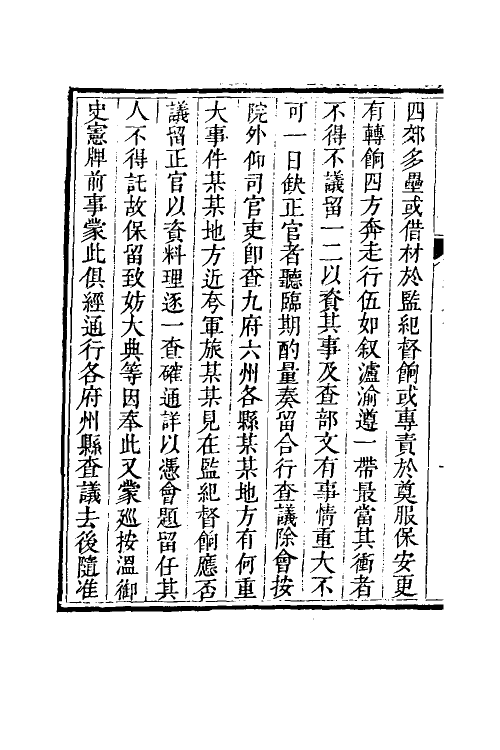 四郊多壘或借材於監紀督餉或專責於奠服保安更
有轉餉四方奔走行伍如叙瀘渝遵一帶最當其衝者
不得不議留一二以資其事及查部文有事情重大不
可一日缺正官者聽臨期酌量奏留合行查議除會按
院外仰司官吏卽查九府六州各縣某某地方有何重
大事件某某地方近夸軍旅某某見在監紀督餉應否
議留正官以資料理逐一查確通詳以憑會題留任其
人不得託故保留致妨大典等因奉此又蒙廵按溫御
史憲牌前事蒙此俱經通行各府州縣查議去後隨准